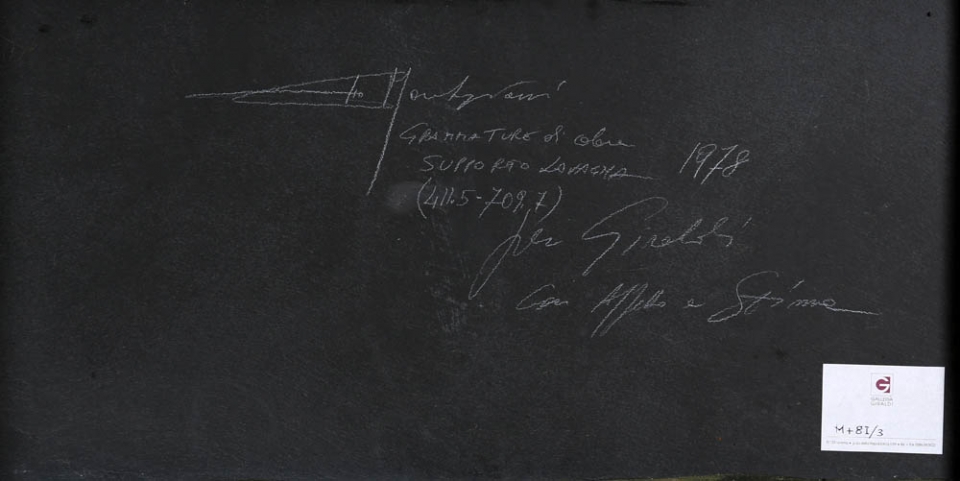 GRAMMATURE di colore
SUPPORTO LAVAGNA 1978
(411.5-709.7)
per Giraldi
Con Affetto e Stima
G
GALLERIA
GIRALDI
M+81/3